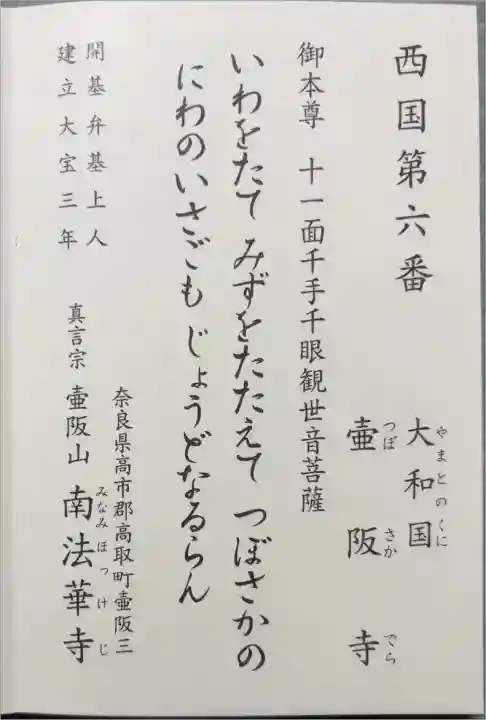 西国第六番
大和国
やまとのくに
壷阪寺
つぼさかでら
御本尊 十一面千手千眼観世音菩薩
いわをたて みずをたたえて つぼさかの
にわのいさごも じょうどなるらん
開基弁基上人
建立大宝三年
奈良県高市郡高取町壷阪三
真言宗 壷阪山 南法華寺
みなみほっけじ